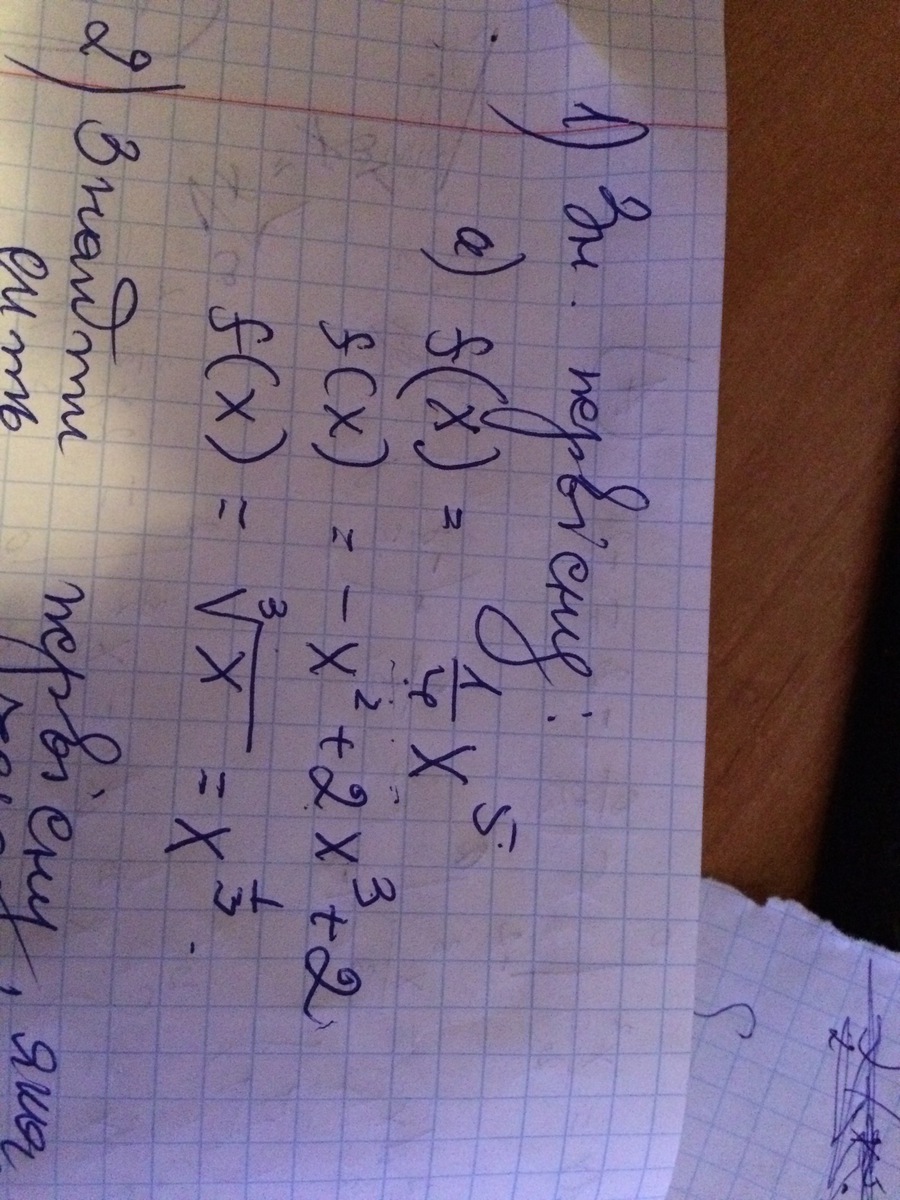 1) Зн. первісну:
а) f(x) = 1/4 x⁵
f(x) = -x² + 2x³ + 2
f(x) = ∛x = x^(1/3).
2) Знайти первісну, яка